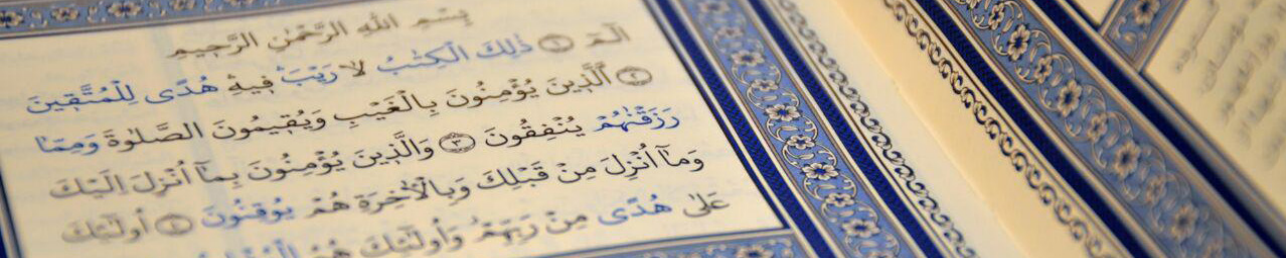 بِسْمِ اللّٰهِ الرَّحْمٰنِ الرَّحٖيمِ
الٓمٓ ﴿١﴾ ذٰلِكَ الْكِتَابُ لَا رَيْبَ فٖيهِ هُدًى لِلْمُتَّقٖينَ
﴿٢﴾ اَلَّذٖينَ يُؤْمِنُونَ بِالْغَيْبِ وَيُقٖيمُونَ الصَّلٰوةَ وَمِمَّا
رَزَقْنَاهُمْ يُنْفِقُونَ ﴿٣﴾ وَالَّذٖينَ يُؤْمِنُونَ بِمَٓا اُنْزِلَ اِلَيْكَ
وَمَٓا اُنْزِلَ مِنْ قَبْلِكَ وَبِالْاٰخِرَةِ هُمْ يُوقِنُونَ ﴿٤﴾ اُولٰٓئِكَ
عَلٰى هُدًى مِنْ رَبِّهِمْ وَاُولٰٓئِكَ هُمُ